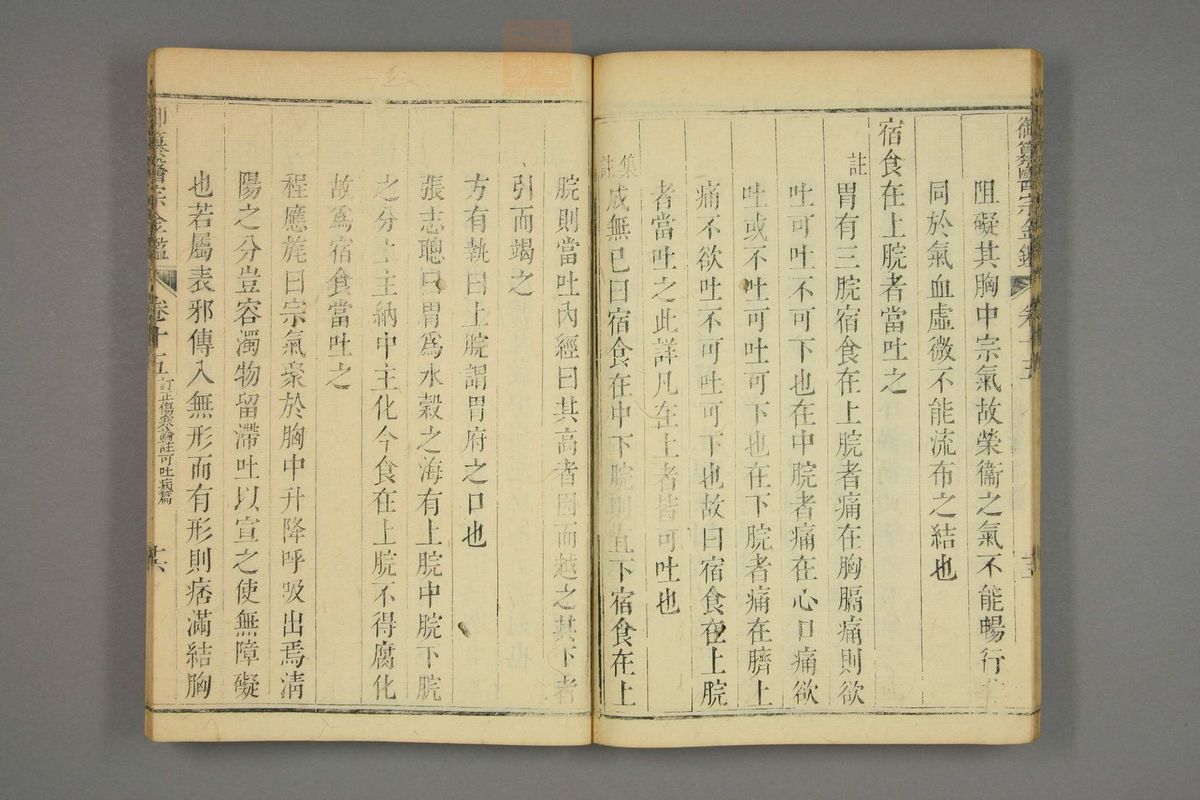 御纂醫宗金鑑 卷十五
阻礙其胸中宗氣故榮衞之氣不能暢行
同於氣血虛微不能流布之結也
宿食在上脘者當吐之
註 胃有三脘宿食在上脘者痛在胸膈痛則欲
吐可吐不可下也在中脘者痛在心口痛欲
吐或不吐可吐可下也在下脘者痛在臍上
痛不欲吐不可吐可下也故曰宿食在上脘
者當吐之此詳凡在上者皆可吐也
集註 成無已曰宿食在中下脘則宜下宿食在上
脘則當吐內經曰其高者因而越之其下者
引而竭之
方有執曰上脘謂胃府之口也
張志聰曰胃爲水穀之海有上脘中脘下脘
之分上主納中主化今食在上脘不得腐化
故爲宿食當吐之
程應旄曰宗氣聚於胸中升降呼吸出焉清
陽之分豈容濁物留滯吐以宣之使無障礙
也若屬表邪傳入無形而有形則痞滿結胸
纂醫宗金鑑 卷十五 訂正傷寒論註可吐病篇 十六